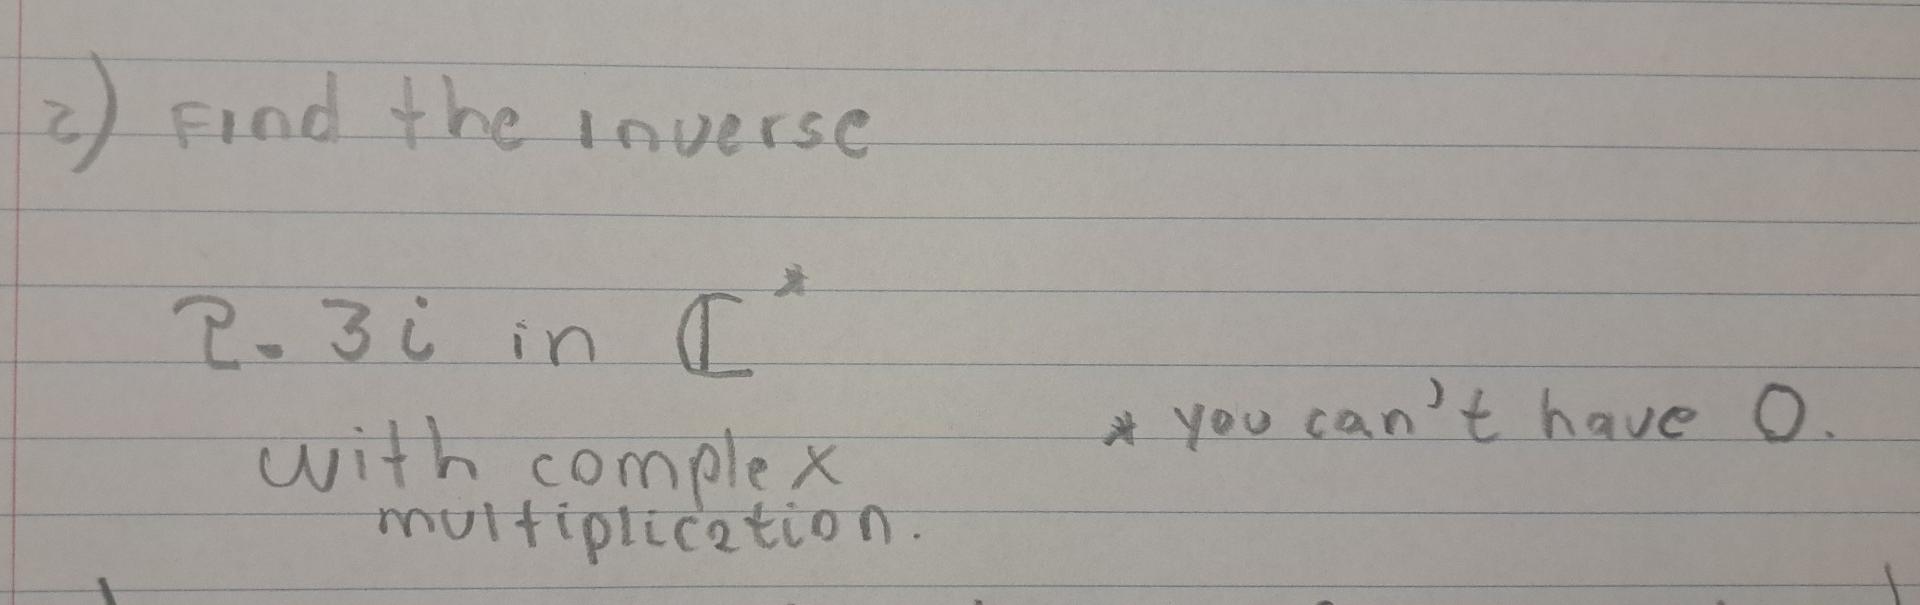 2) Find the inverse
2-3i in ℂ*
* you can't have 0.
with complex
multiplication.